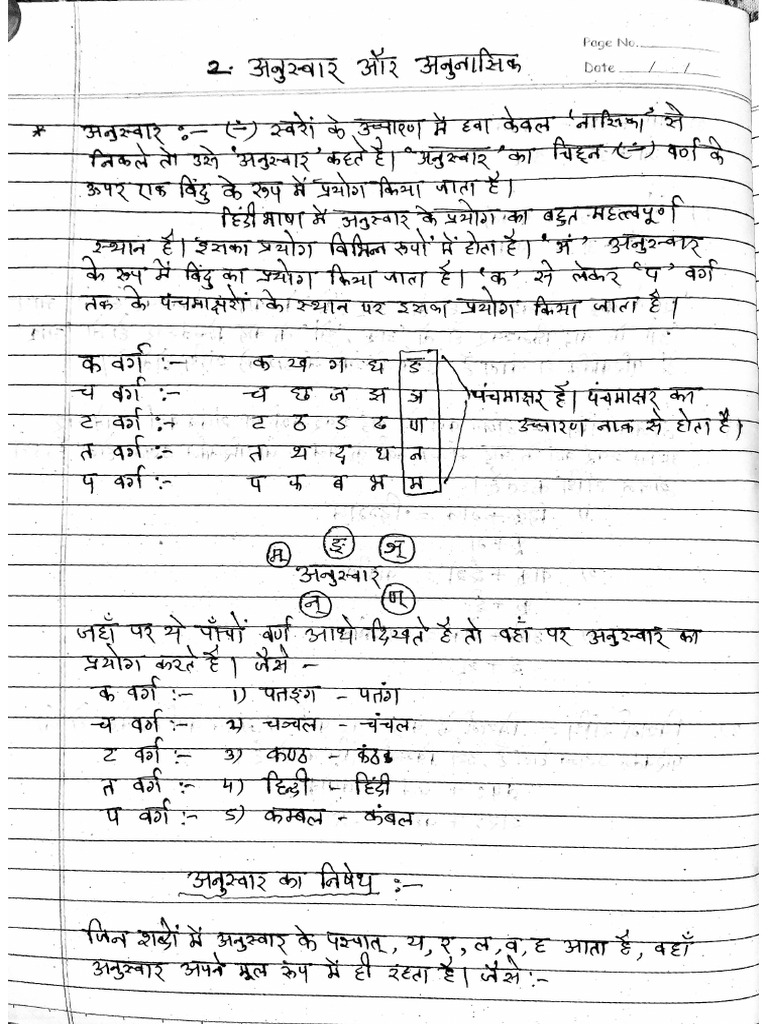 Page No.
Date / /
2. अनुस्वार और अनुनासिक
* अनुस्वार :- (ं) स्वरों के उच्चारण में हवा केवल 'नासिका' से
निकले तो उसे 'अनुस्वार' कहते है। 'अनुस्वार' का चिह्न (ं) वर्ण के
ऊपर एक बिंदु के रूप में प्रयोग किया जाता है।
हिंदी भाषा में अनुस्वार के प्रयोग का बहुत महत्त्वपूर्ण
स्थान है। इसका प्रयोग विभिन्न रूपों में होता है। 'अं' अनुस्वार
के रूप में बिंदु का प्रयोग किया जाता है। 'क' से लेकर 'प' वर्ग
तक के पंचमाक्षरों के स्थान पर इसका प्रयोग किया जाता है।
क वर्ग :- क ख ग घ ङ
च वर्ग :- च छ ज झ ञ पंचमाक्षर है। पंचमाक्षर का
ट वर्ग :- ट ठ ड ढ ण उच्चारण नाक से होता है।
त वर्ग :- त थ द ध न
प वर्ग :- प फ ब भ म
म् ङ् ञ्
अनुस्वार
न् ण्
जहाँ पर ये पाँचों वर्ण आधे दिखते है तो वहाँ पर अनुस्वार का
प्रयोग करते है। जैसे -
क वर्ग :- 1) पतङ्ग - पतंग
च वर्ग :- 2) चञ्चल - चंचल
ट वर्ग :- 3) कण्ठ - कंठ
त वर्ग :- 4) हिन्दी - हिंदी
प वर्ग :- 5) कम्बल - कंबल
अनुस्वार का निषेध :-
जिन शब्दों में अनुस्वार के पश्चात्, य, र, ल, व, ह आता है, वहाँ
अनुस्वार अपने मूल रूप में ही रहता है। जैसे :-